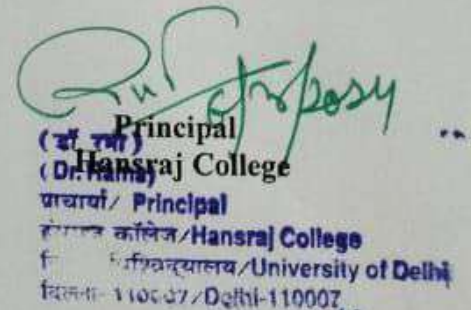 Principal
Hansraj College
(डॉ. रमा)
(Dr. Rama)
प्राचार्या/ Principal
हंसराज कॉलेज/Hansraj College
विश्वविद्यालय/University of Delhi
110007/Delhi-110007